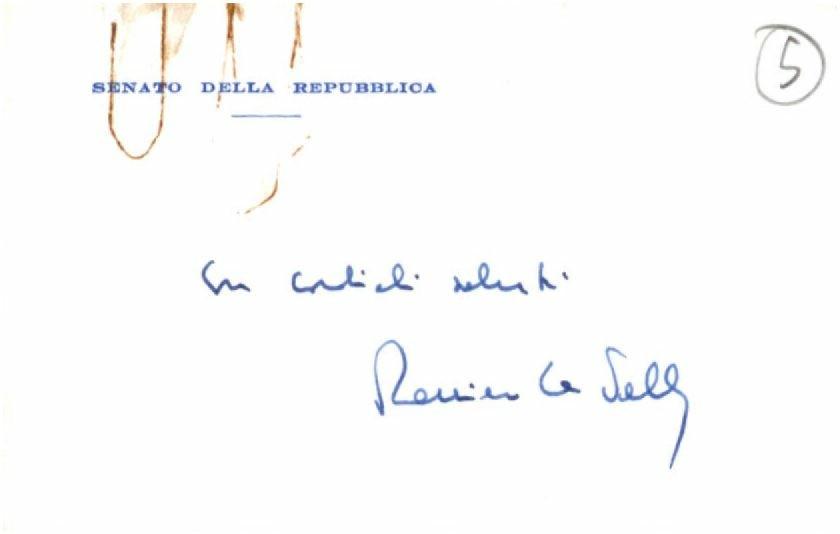 SENATO DELLA REPUBBLICA
5
Con cordiali saluti
Raniero La Valle